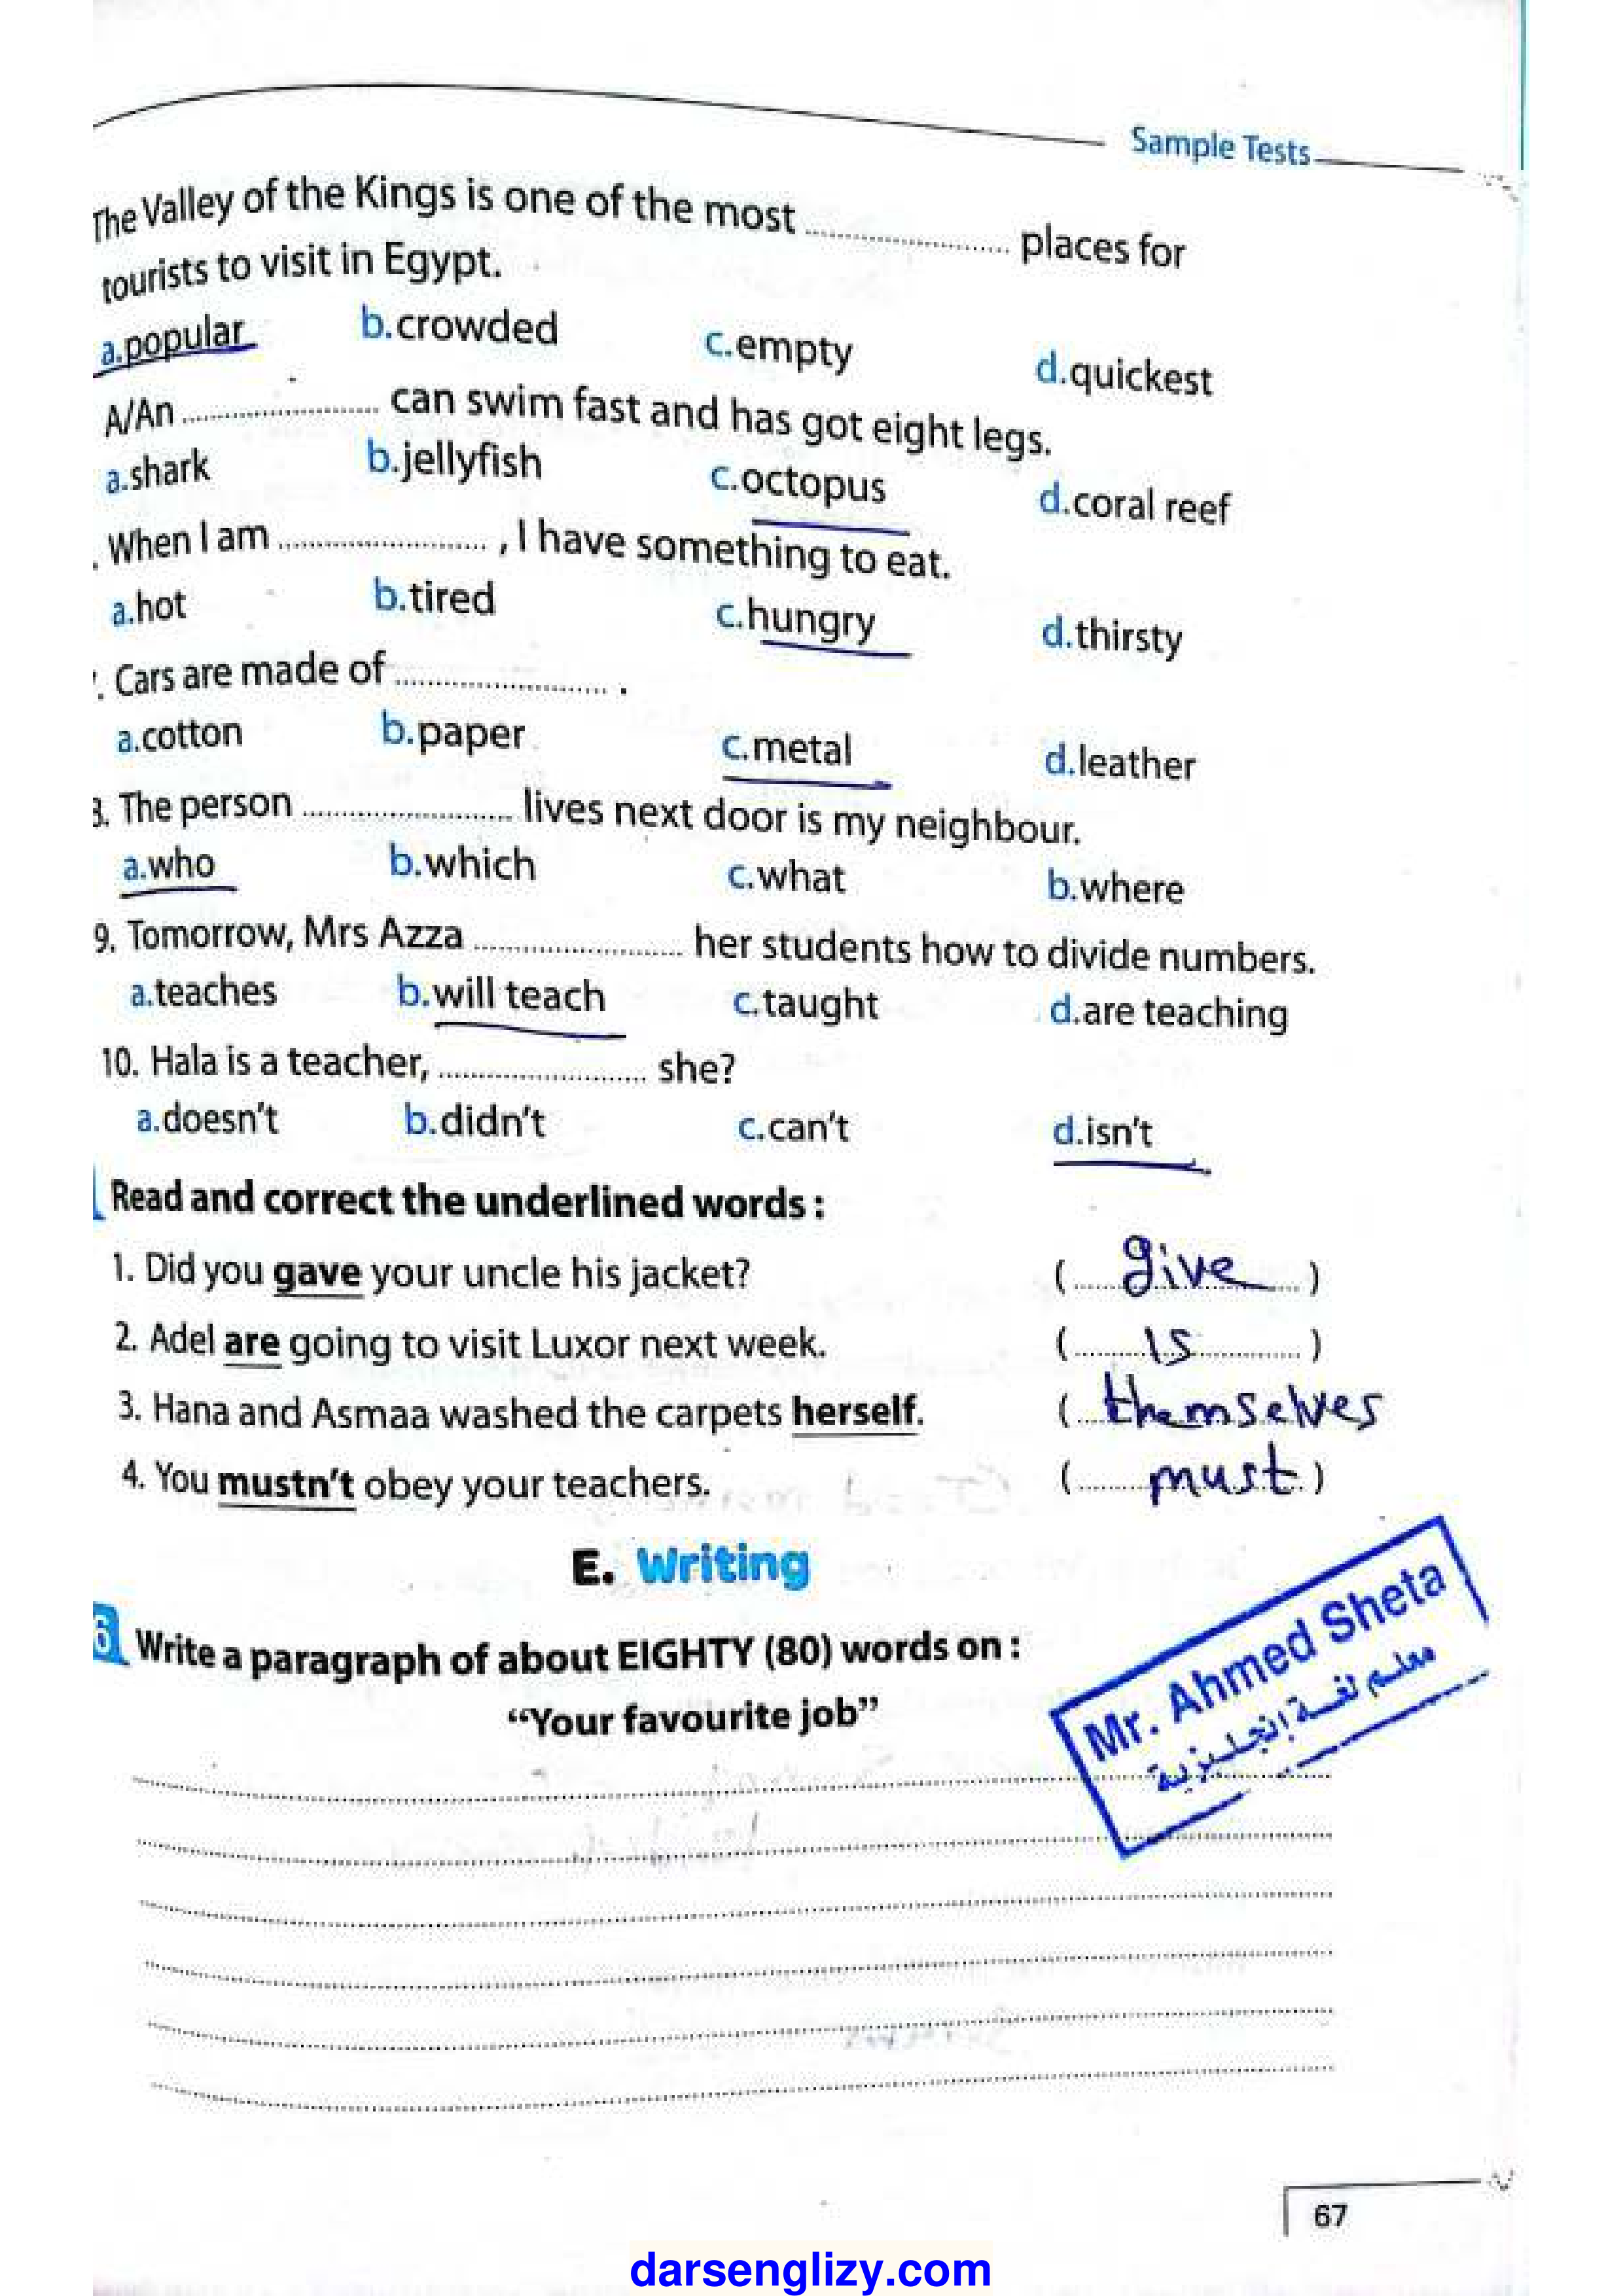 Sample Tests
The Valley of the Kings is one of the most .................... places for
tourists to visit in Egypt.
a.popular b.crowded c.empty d.quickest
A/An .................... can swim fast and has got eight legs.
a.shark b.jellyfish c.octopus d.coral reef
. When I am .................... , I have something to eat.
a.hot b.tired c.hungry d.thirsty
. Cars are made of .................... .
a.cotton b.paper c.metal d.leather
8. The person .................... lives next door is my neighbour.
a.who b.which c.what b.where
9. Tomorrow, Mrs Azza .................... her students how to divide numbers.
a.teaches b.will teach c.taught d.are teaching
10. Hala is a teacher, .................... she?
a.doesn't b.didn't c.can't d.isn't
Read and correct the underlined words :
1. Did you gave your uncle his jacket? ( give )
2. Adel are going to visit Luxor next week. ( is )
3. Hana and Asmaa washed the carpets herself. ( themselves
4. You mustn't obey your teachers. ( must )
E. Writing
6 Write a paragraph of about EIGHTY (80) words on :
“Your favourite job”
Mr. Ahmed Sheta
معلم لغة إنجليزية
67
darsenglizy.com